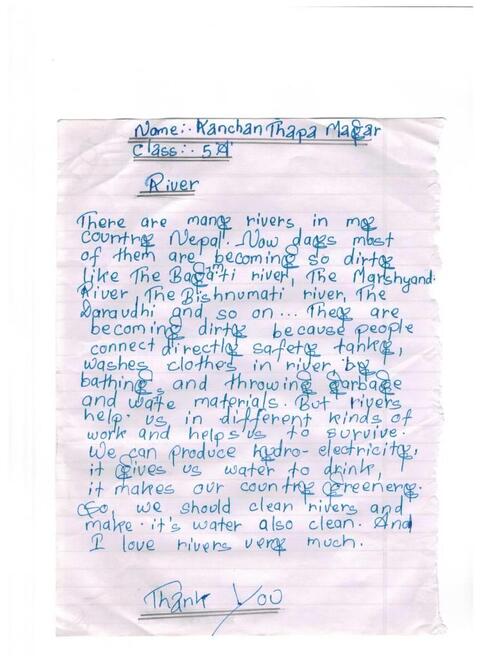 Name:- Kanchan Thapa Magar
Class:- 5 'A'
River
There are many rivers in my
country Nepal. Now days most
of them are becoming so dirty
like The Bagmati river, The Marshyandi
River, The Bishnumati river, The
Daraudhi and so on... They are
becoming dirty because people
connect directly safety tanky,
washes clothes in river by
bathing, and throwing garbage
and wate materials. But rivers
help us in different kinds of
work and helps us to survive.
We can produce hydro-electricity,
it gives us water to drink,
it makes our country greenery.
So, we should clean rivers and
make it's water also clean. And
I love rivers very much.
Thank You